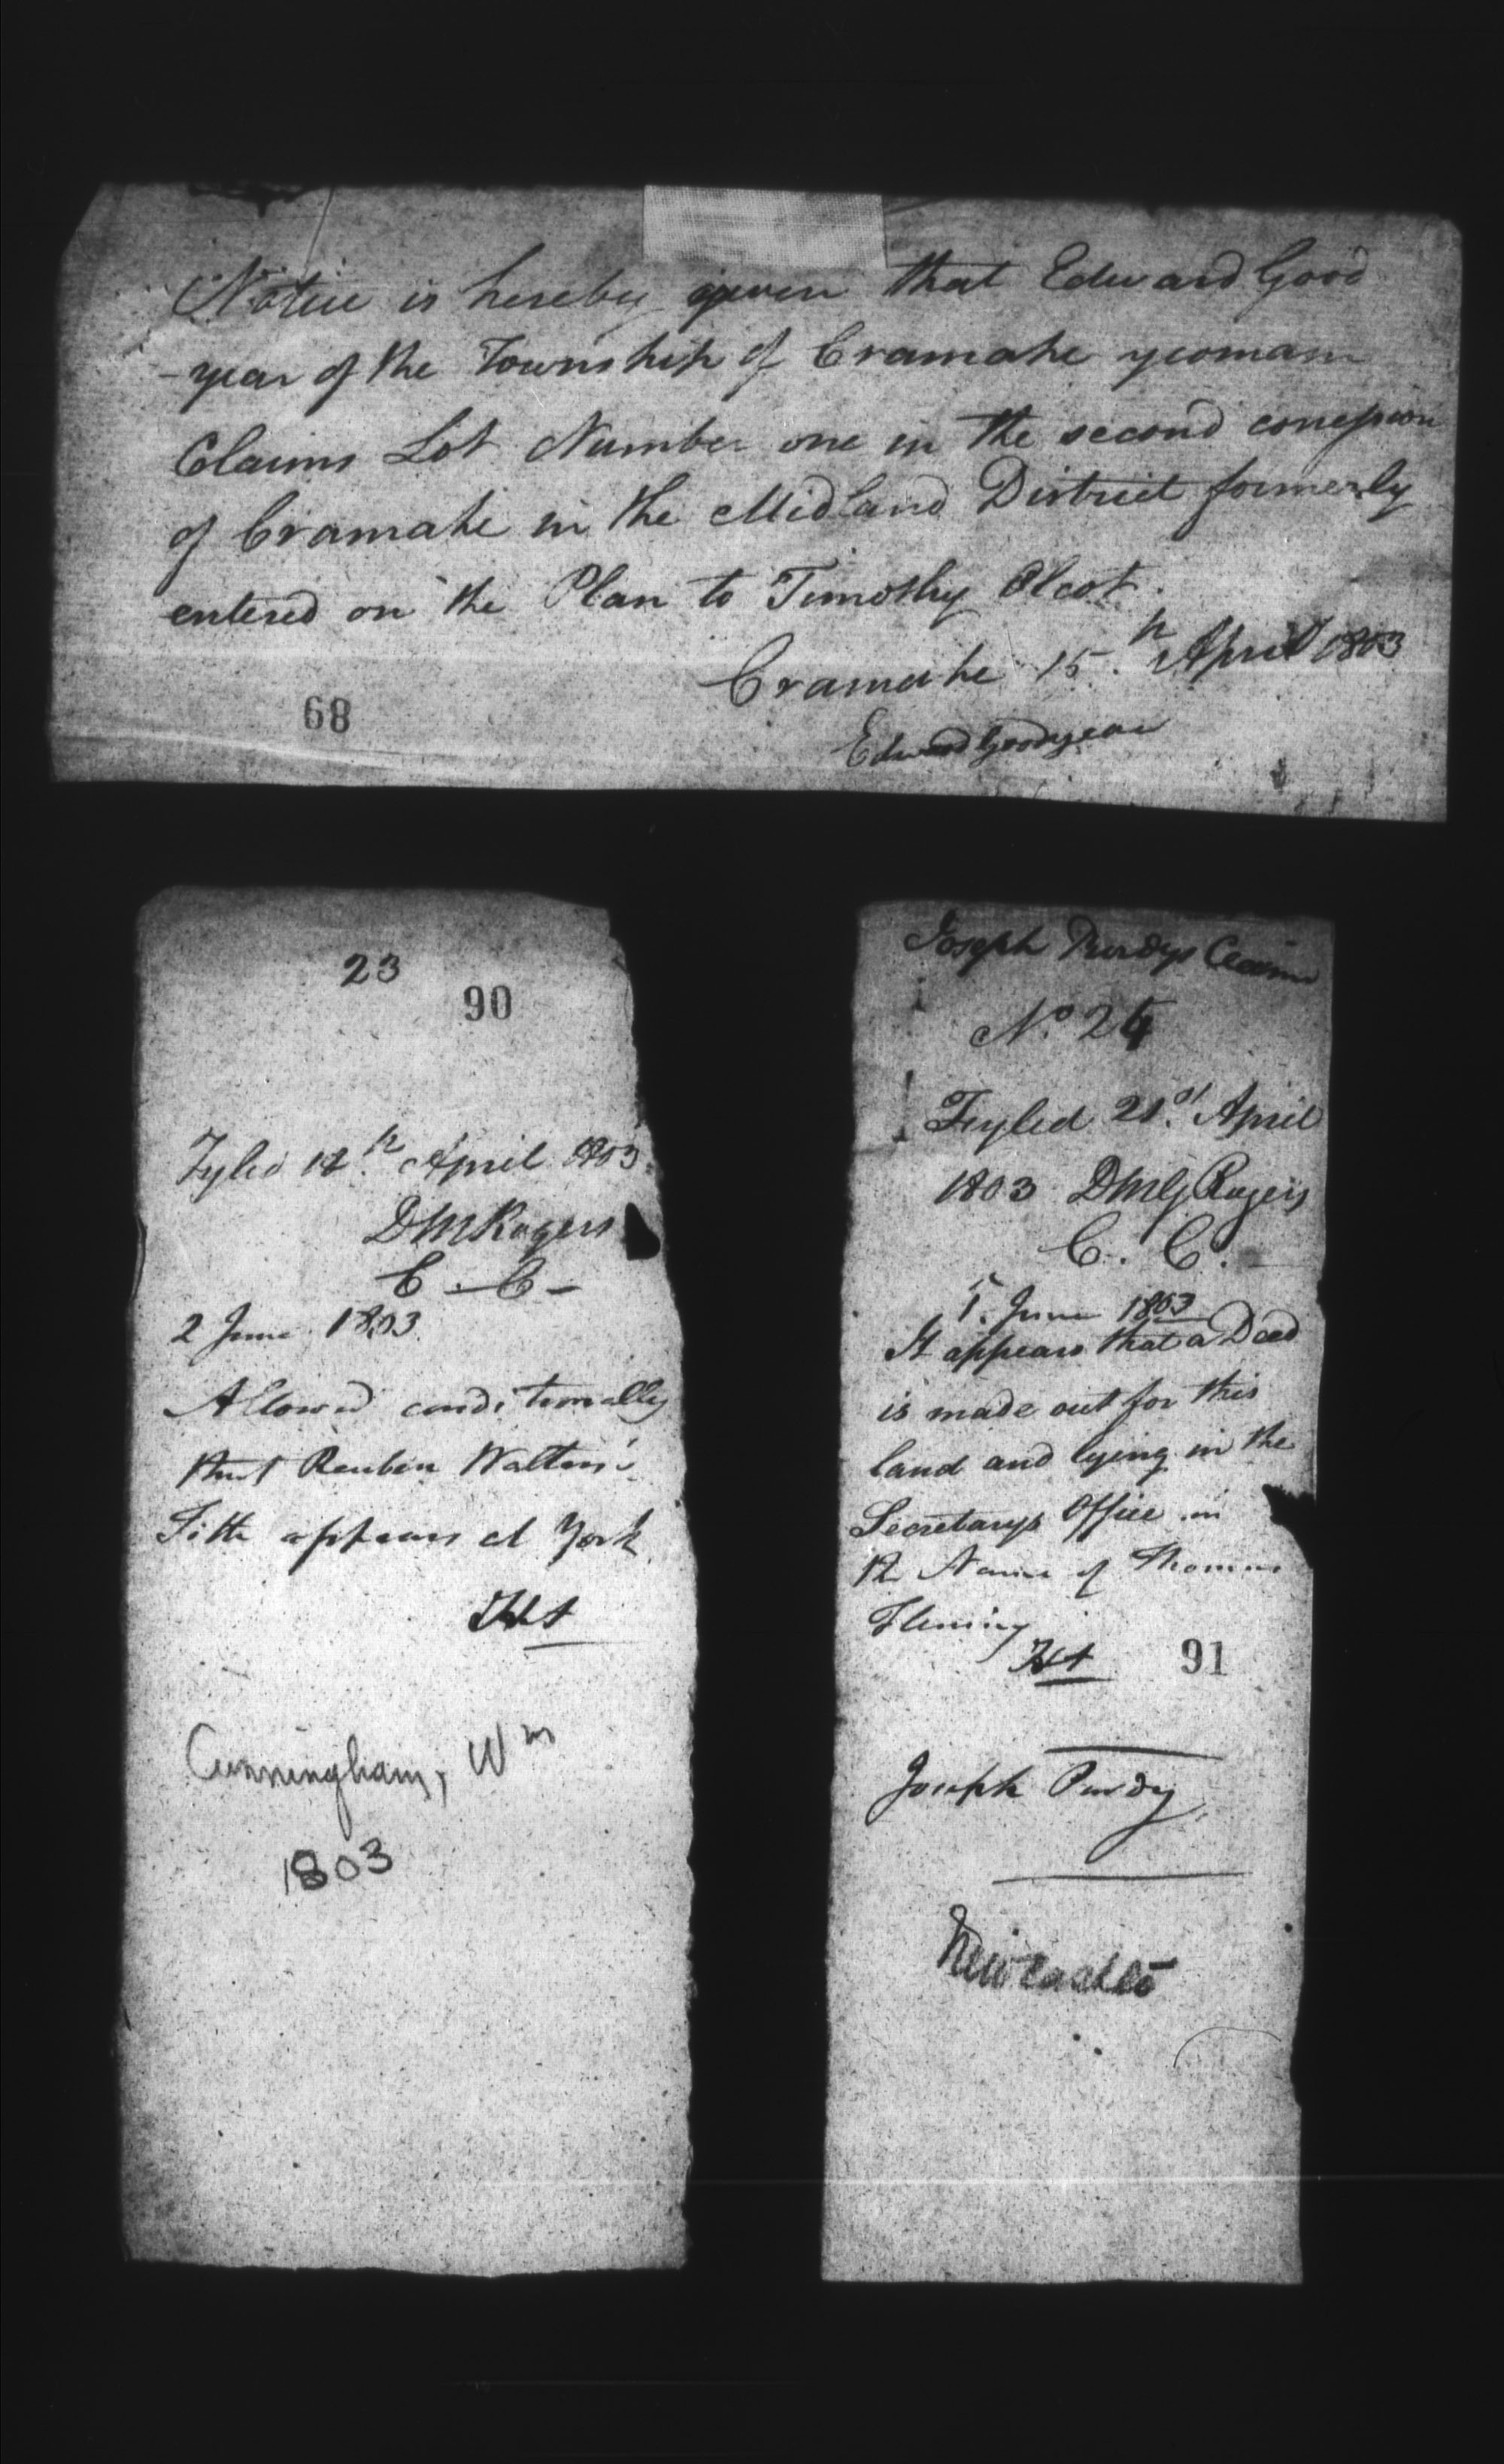 Notice is hereby given that Edward Good
-year of the Township of Cramahe yeoman
Claims Lot Number one in the second concession
of Cramahe in the Midland District formerly
entered on the Plan to Timothy Olcot.
Cramahe 15.th April 1803
Edward Goodyear
68
23
90
Fyled 12.th April 1803.
DMRogers
C. C-
2 June 1803
Allowed conditionally
that Reuben Walton's
Title appears at York
Cunningham, Wm
1803
Joseph Purdys Claim
No. 24
Feyled 21.st April
1803 DMGRogers
C. C.
1. June 1803
It appears that a Deed
is made out for this
land and lying in the
Secretarys Office in
the Name of Thomas
Fleming
91
Joseph Purdy,
Newcastle